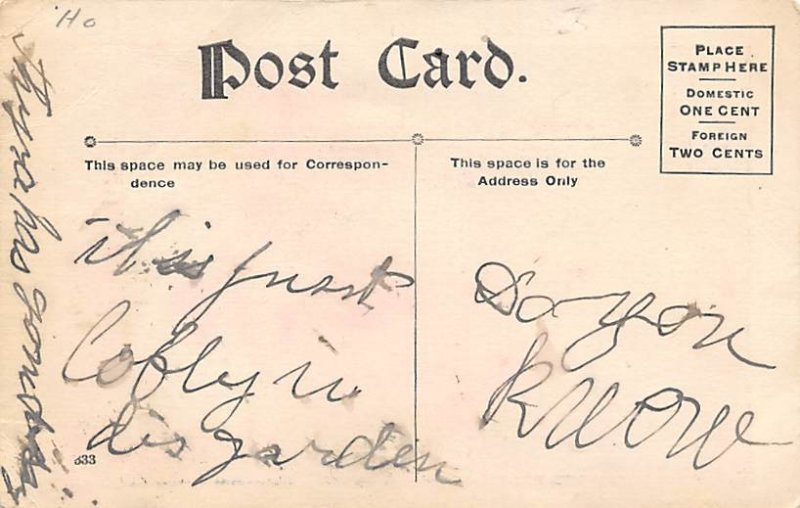 Ho
Post Card.
PLACE
STAMP HERE
DOMESTIC
ONE CENT
FOREIGN
TWO CENTS
This space may be used for Correspon-
dence
it is just
lofly in
dis garden
This space is for the
Address Only
Do you
know
333